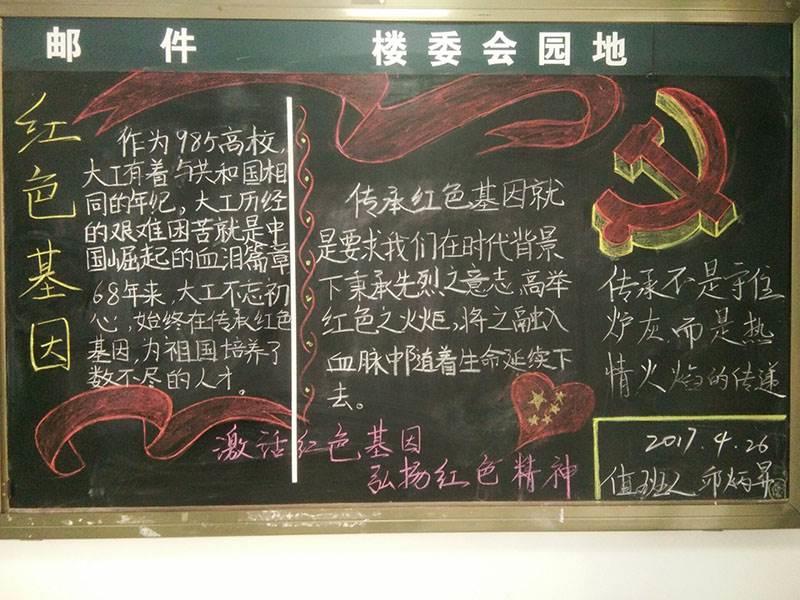 邮件
楼委会园地
红色基因
作为985高校,
大工有着与共和国相
同的年纪,大工历经
的艰难困苦就是中
国崛起的血泪篇章
68年来,大工不忘初
心,始终在传承红色
基因,为祖国培养了
数不尽的人才。
传承红色基因就
是要求我们在时代背景
下秉承先烈之意志,高举
红色之火炬,将之融入
血脉中随着生命延续下
去。
激活红色基因
弘扬红色精神
传承不是守住
炉灰,而是热
情火焰的传递
2017.4.26
值班人 邱炳昇